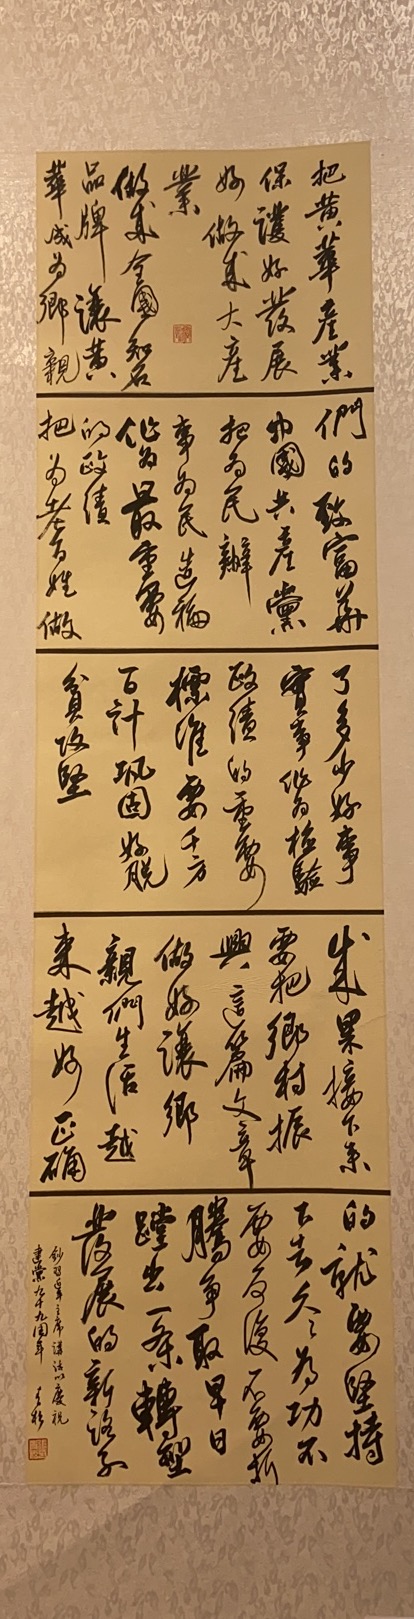 把黄華產業
保護好發展
好做成大產
業
做成全國知名
品牌讓黄
華成為鄉親
們的致富華
中國共產黨
把為民辦
事為民造福
作為最重要
的政績
把為老百姓做
了多少好事
實事作為檢驗
政績的重要
標准要千方
百計巩固好脫
貧攻堅
成果接下来
要把鄉村振
興這篇文章
做好讓鄉
親們生活越
来越好正确
的就要堅持
下去久久為功不
要反復不要折
騰爭取早日
蹚出一条轉型
發展的新路子
鈔習主席講話以慶祝
建黨九十九周年